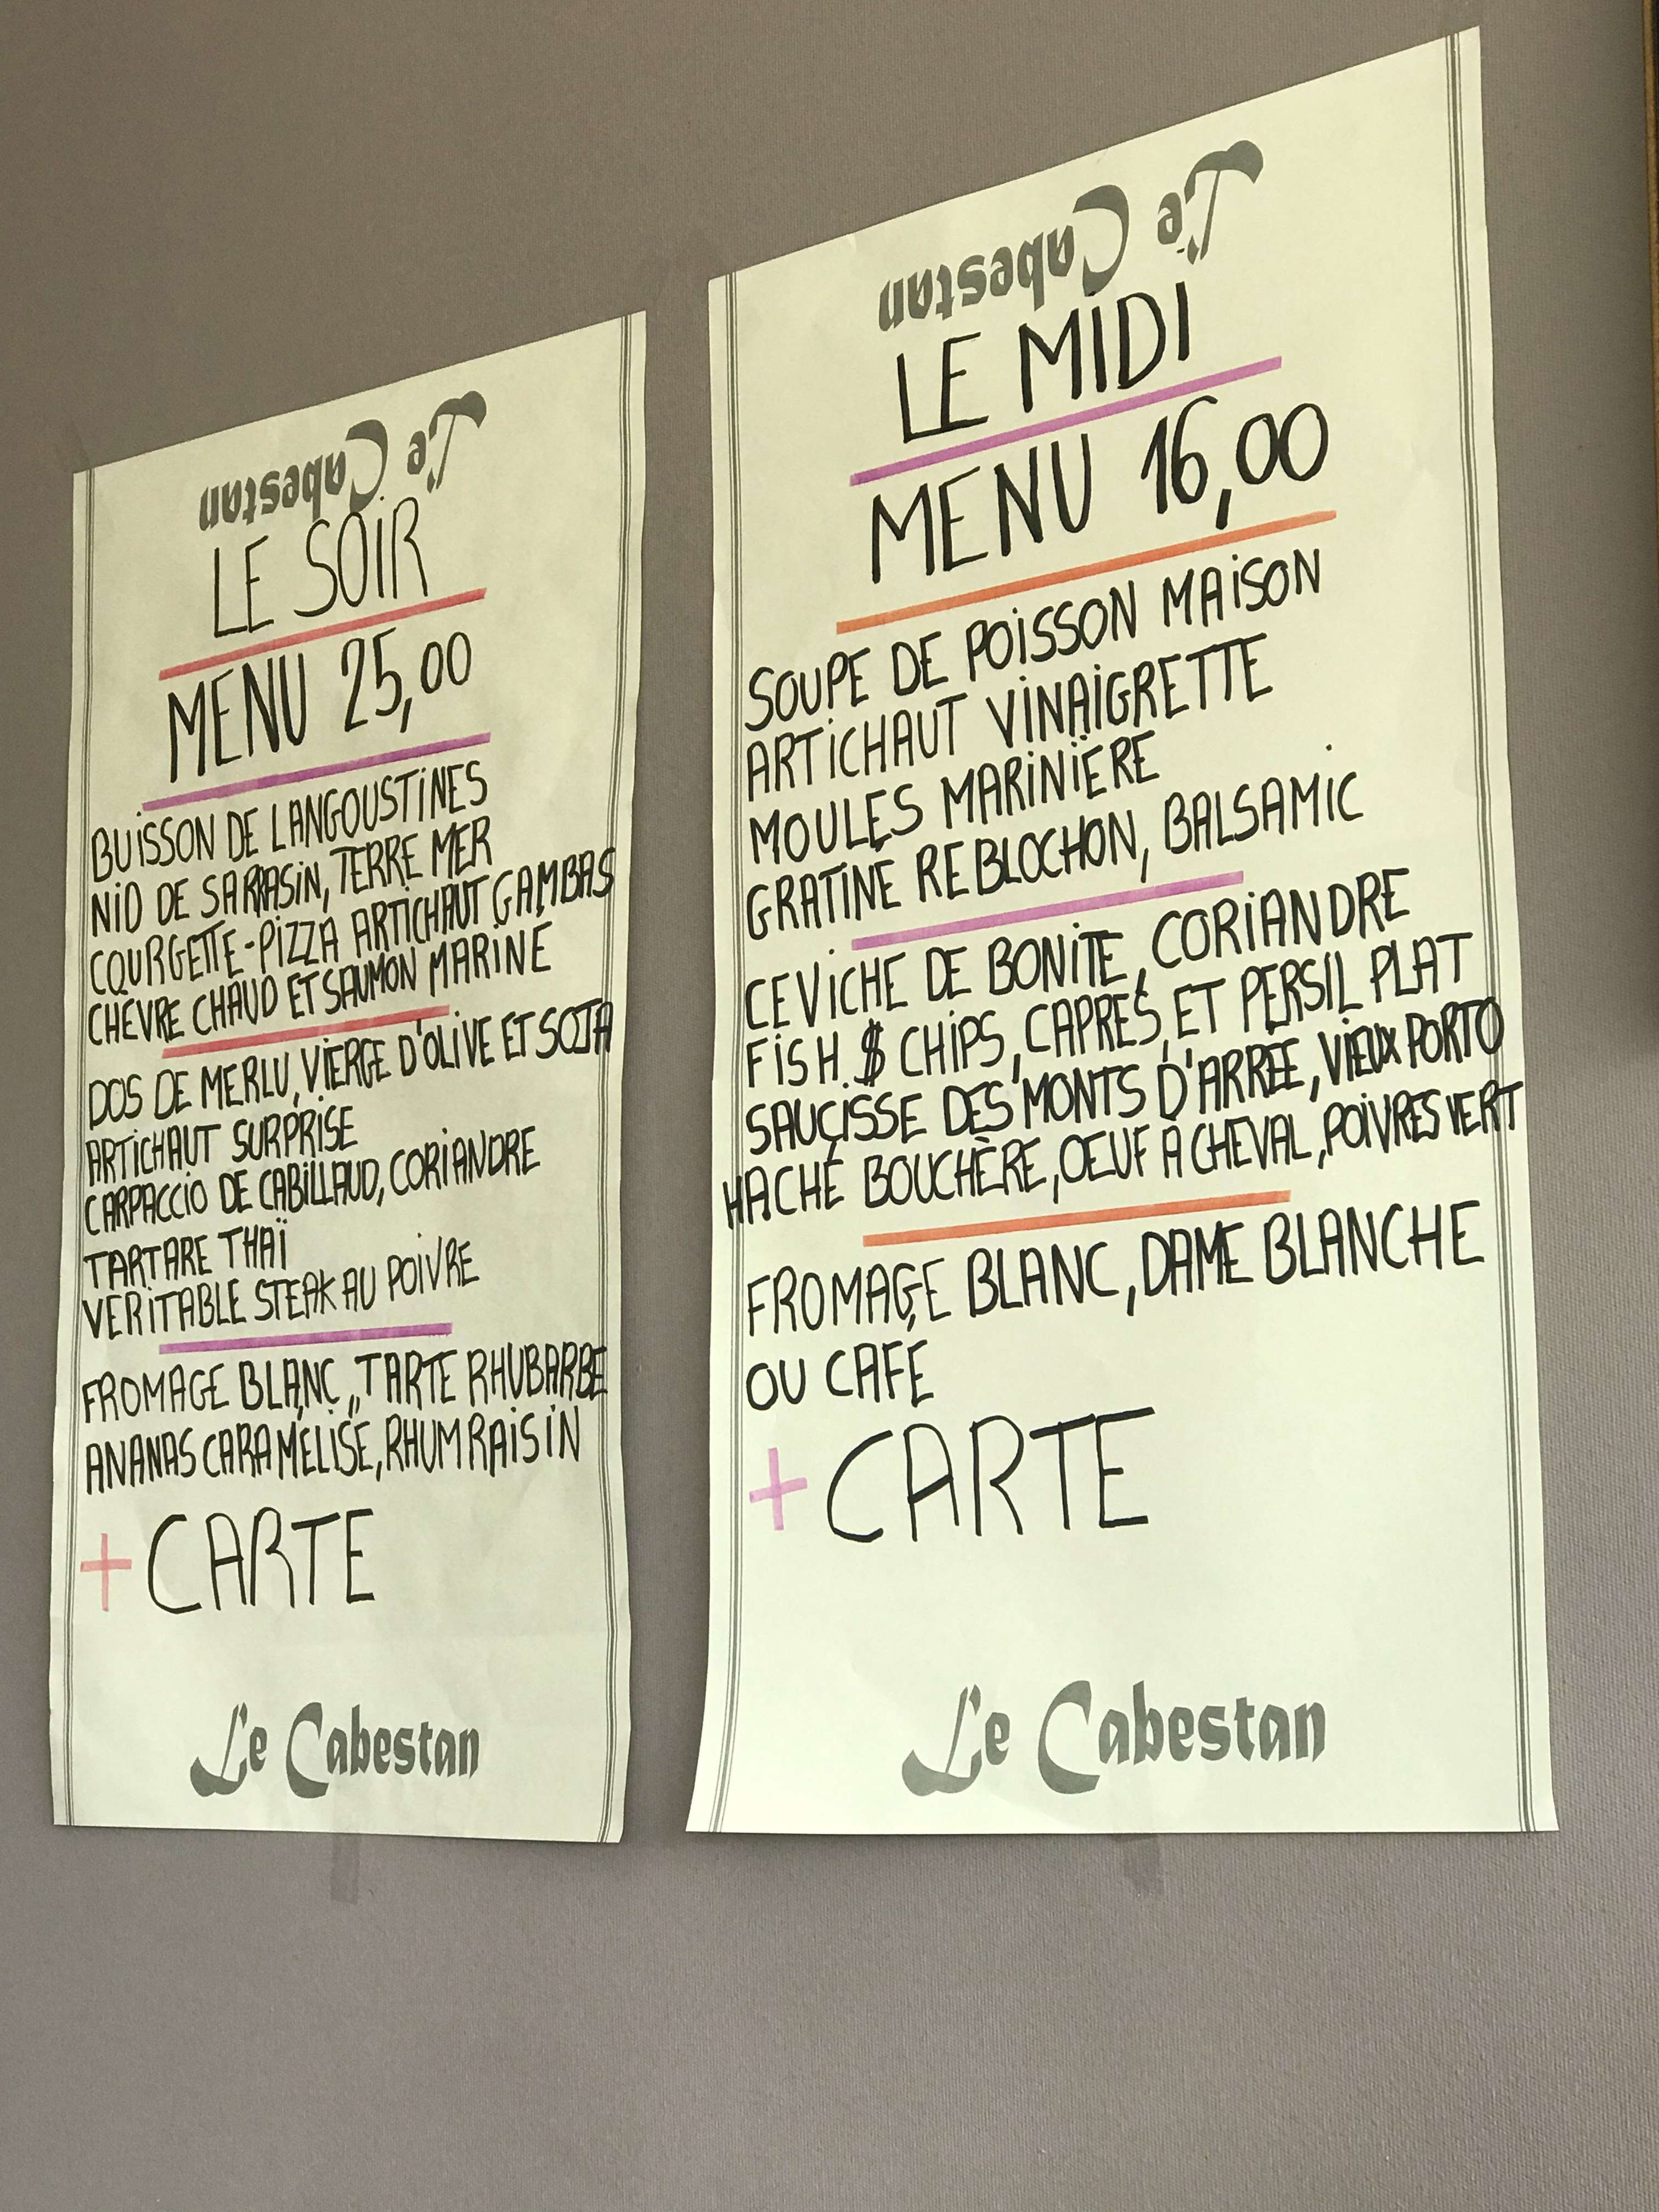 Le Cabestan
LE SOIR
MENU 25,00
BUISSON DE LANGOUSTINES
NID DE SARRASIN, TERRE MER
COURGETTE-PIZZA ARTICHAUT GAMBAS
CHÈVRE CHAUD ET SAUMON MARINÉ
DOS DE MERLU, VIERGE D'OLIVE ET SOJA
ARTICHAUT SURPRISE
CARPACCIO DE CABILLAUD, CORIANDRE
TARTARE THAÏ
VERITABLE STEAK AU POIVRE
FROMAGE BLANC, TARTE RHUBARBE
ANANAS CARAMÉLISÉ, RHUM RAISIN
+ CARTE
Le Cabestan
Le Cabestan
LE MIDI
MENU 16,00
SOUPE DE POISSON MAISON
ARTICHAUT VINAIGRETTE
MOULES MARINIÈRE
GRATINÉ REBLOCHON, BALSAMIC
CEVICHE DE BONITE, CORIANDRE
FISH $ CHIPS, CAPRES, ET PERSIL PLAT
SAUCISSE DES MONTS D'ARRÉE, VIEUX PORTO
HACHÉ BOUCHÈRE, OEUF A CHEVAL, POIVRES VERT
FROMAGE BLANC, DAME BLANCHE
OU CAFÉ
+ CARTE
Le Cabestan